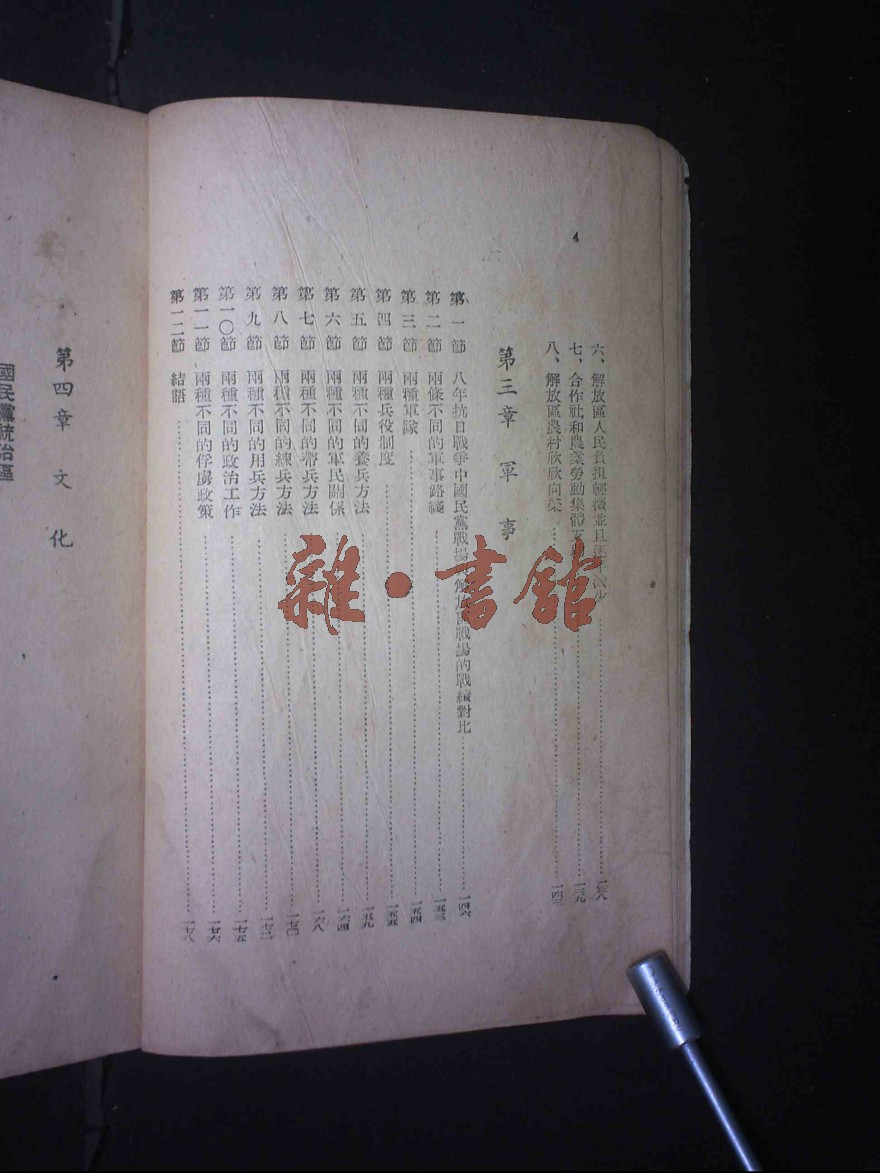 4
六、解放區人民負担輕微並且逐年減少 一三八
七、合作社和農業勞動集體互助 一三九
八、解放區農村欣欣向榮 一四三
第三章 軍事
第一節 八年抗日戰爭中國民黨戰場 解放區戰場的戰績對比 一四六
第二節 兩條不同的軍事路綫 一五三
第三節 兩種軍隊 一五四
第四節 兩種兵役制度 一五五
第五節 兩種不同的養兵方法 一五九
第六節 兩種不同的軍民關係 一六四
第七節 兩種不同的帶兵方法 一六八
第八節 兩種不同的練兵方法 一七〇
第九節 兩種不同的用兵方法 一七二
第一〇節 兩種不同的政治工作 一七五
第一一節 兩種不同的俘虜政策 一七六
第一二節 結語 一七八
第四章 文化
國民黨統治區
雜·書館